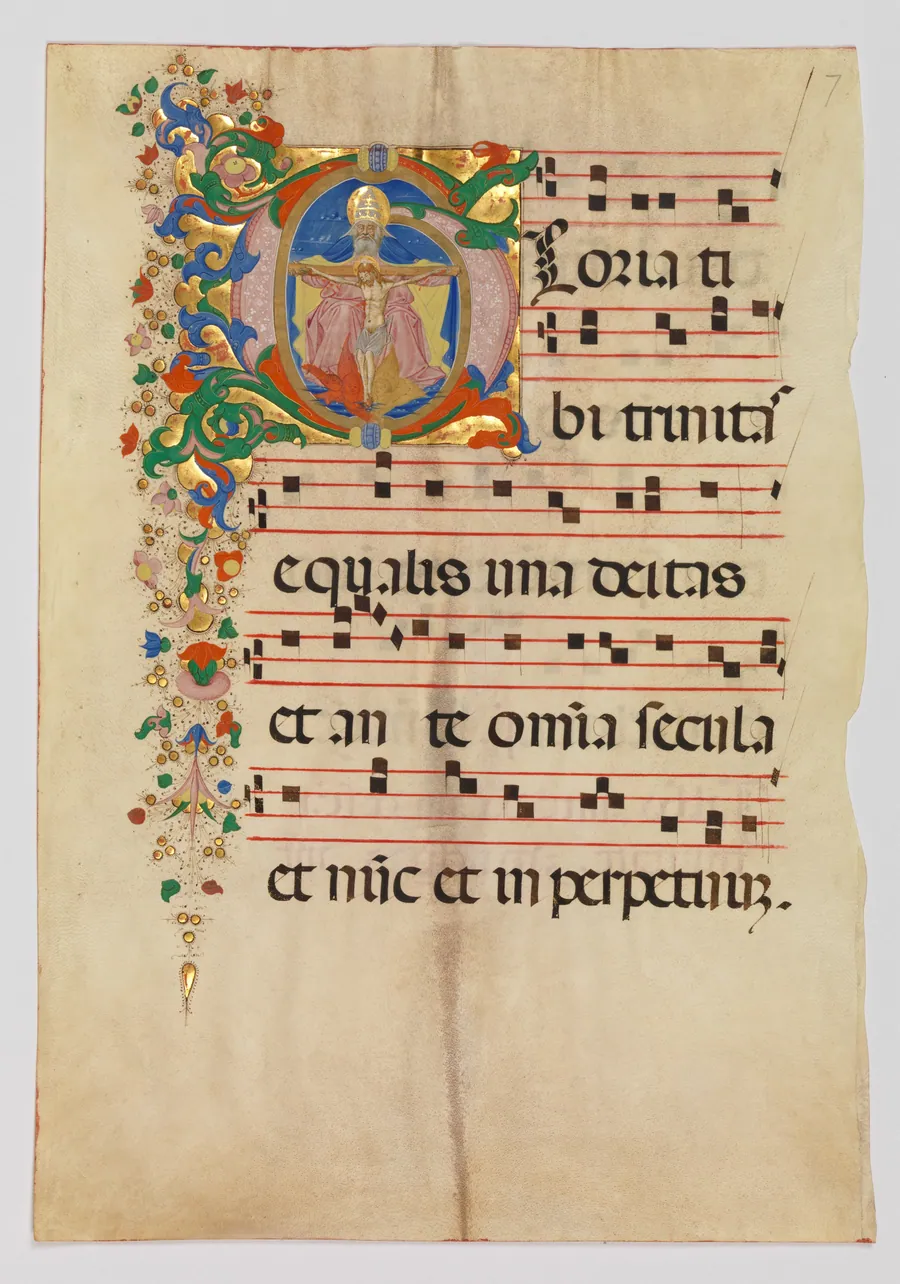 7
GLoria ti
bi trinitas
equalis una deitas
et an te om̄ia secula
et nūc et in perpetuuꝫ.